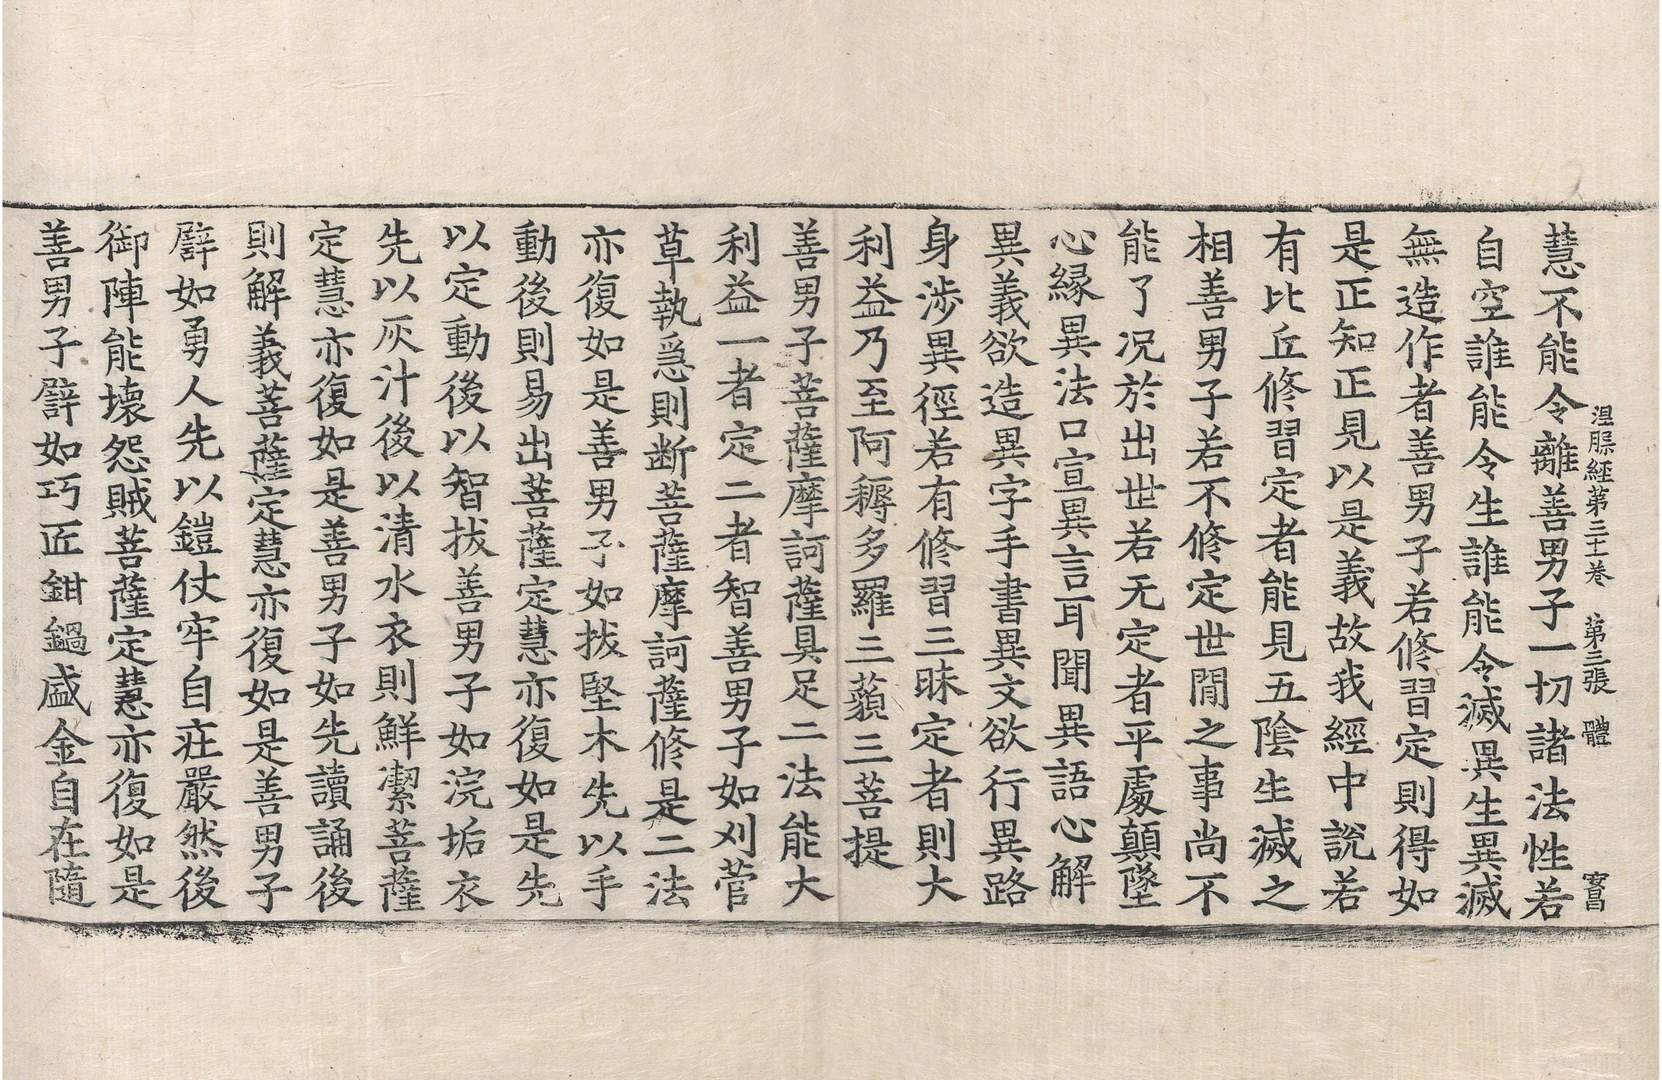 涅槃經第三十一卷 第三張 體 寶昌
慧不能令離善男子一切諸法性若
自空誰能令生誰能令滅異生異滅
無造作者善男子若修習定則得如
是正知正見以是義故我經中說若
有比丘修習定者能見五陰生滅之
相善男子若不修定世閒之事尚不
能了况於出世若无定者平處顛墜
心緣異法口宣異言耳聞異語心解
異義欲造異字手書異文欲行異路
身涉異徑若有修習三昧定者則大
利益乃至阿耨多羅三藐三菩提
善男子菩薩摩訶薩具足二法能大
利益一者定二者智善男子如刈菅
草執急則断菩薩摩訶薩修是二法
亦復如是善男子如拔堅木先以手
動後則易出菩薩定慧亦復如是先
以定動後以智拔善男子如浣垢衣
先以灰汁後以清水衣則鮮潔菩薩
定慧亦復如是善男子如先讀誦後
則解義菩薩定慧亦復如是善男子
譬如勇人先以鎧仗牢自莊嚴然後
御陣能壞怨賊菩薩定慧亦復如是
善男子譬如巧匠鉗鍋盛金自在隨